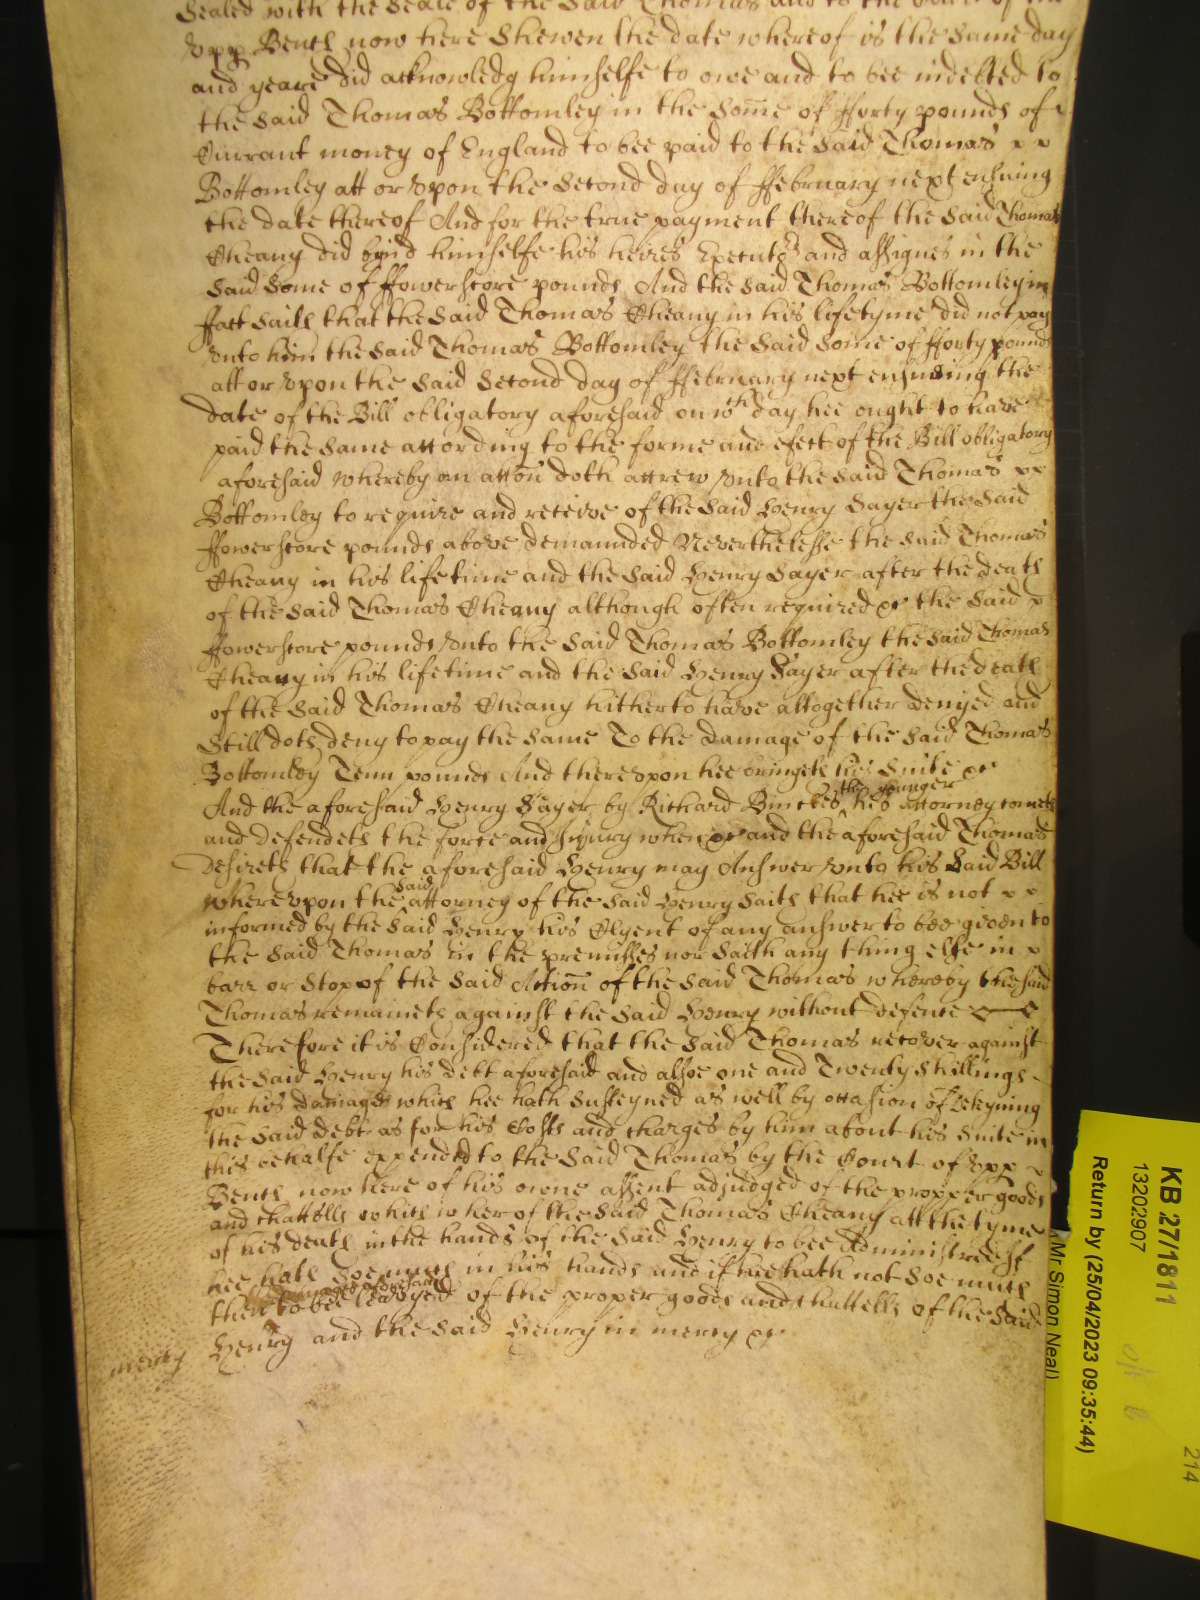 Sealed with the Seale of the said Thomas and to the Court of the
upp Bench now here Shewen the date whereof is the same day
and yeare did acknowledg himselfe to owe and to bee indebted to
the said Thomas Bottomley in the Some of fforty pounds of
Currant money of England to bee paid to the said Thomas x x
Bottomley att or upon the Second day of ffebruary next ensuing
the date thereof And for the true payment thereof the said Thomas
Cheany did bynd himselfe his heires Executors and assignes in the
said Some of ffowerscore pounds And the said Thomas Bottomley in
ffact saith that the said Thomas Cheany in his lifetyme did not pay
unto him the said Thomas Bottomley the said Some of fforty pounds
att or upon the said Second day of ffebruary next ensuing the
date of the Bill obligatory aforesaid on wch day hee ought to have
paid the same according to the forme and efect of the Bill obligatory
aforesaid whereby an accon doth accrew unto the said Thomas x x
Bottomley to require and receive of the said Henry Sayer the said
ffowerscore pounds above demaunded Neverthelesse the said Thomas
Cheany in his lifetime and the said Henry Sayer after the death
of the said Thomas Cheany although often required &c the said x
ffowerscore pounds unto the said Thomas Bottomley the said Thomas
Cheany in his lifetime and the said Henry Sayer after the death
of the said Thomas Cheany hitherto have altogether denyed and
Still doth deny to pay the same To the damage of the said Thomas
Bottomley Tenn pounds And thereupon hee bringeth his Suite &c
the younger
And the aforesaid Henry Sayer by Richard his attorney cometh
and defendeth the force and Injury when &c and the aforesaid Thomas
desireth that the aforesaid Henry may Answer unto his said Bill
said
whereupon the attorney of the said Henry saith that hee is not x x
informed by the said Henry his Clyent of any answer to bee given to
the said Thomas in the premisses nor saith any thing else in x
barr or Stop of the said Action of the said Thomas whereby the said
Thomas remaineth against the said Henry without defence
Therefore it is Considered that the said Thomas recover against
the said Henry his debt aforesaid and alsoe one and Twenty shillings
for his damages which hee hath susteyned as well by occasion of deteyning
the said debt as for his Costs and charges by him about his Suite in
this behalfe expended to the said Thomas by the Court of upp x
Bench now here of his owne assent adjudged of the propper goods
and chattells which wher of the said Thomas Cheany att the tyme
of his death in the hands of the said Henry to bee Administred if
hee hath soe much in his hands and if hee hath not soe much
damages aforesaid
then to bee leavyed of the proper goods and chattells of the said
Henry and the said Henry in mercy &c
mercy
KB 27/1811
13202907
Return by (25/04/2023 09:35:44)
(Mr Simon Neal)
214